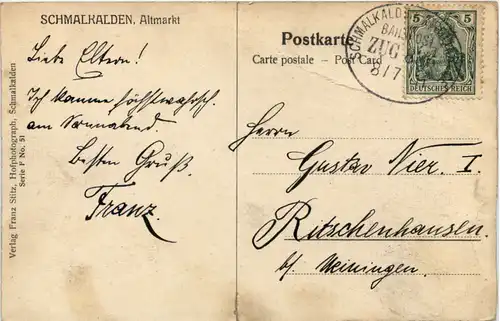 SCHMALKALDEN, Altmarkt
Liebe Eltern!
Ich komme höchstwahrsch.
am Sonnabend.
Besten Gruß.
Franz.
Verlag Franz Stitz, Hofphotograph, Schmalkalden
Serie F No. 51
Postkarte
Carte postale – Post Card
SCHMALKALDEN
BAHNPOST
ZUG
8/7
5 5
DEUTSCHES REICH
Herrn
Gustav Nier. I.
Ritschenhausen
b/ Meiningen.